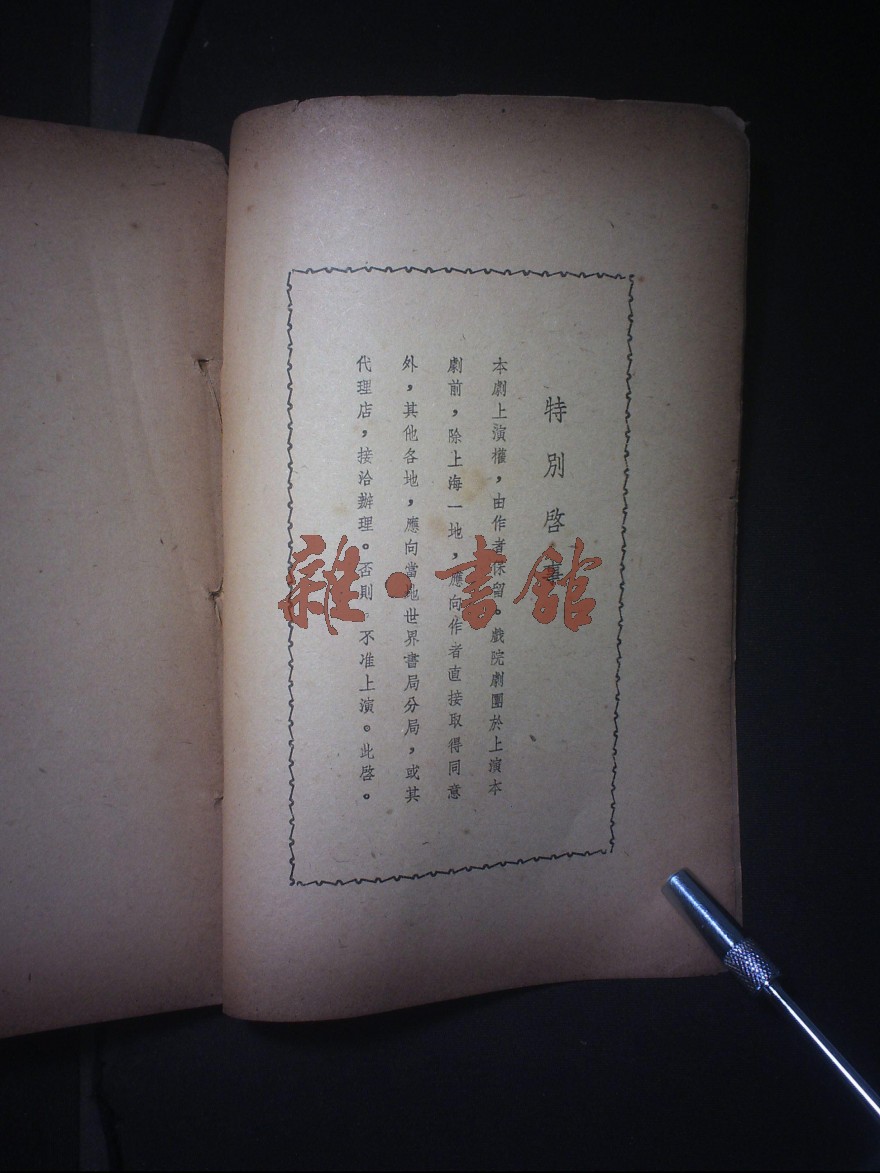 特別啓事
本劇上演權，由作者保留。戲院劇團於上演本
劇前，除上海一地，應向作者直接取得同意
外，其他各地，應向當地世界書局分局，或其
代理店，接洽辦理。否則，不准上演。此啓。
雜·書館